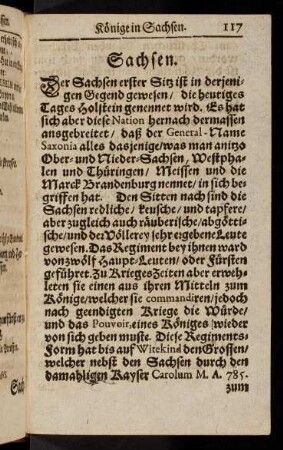 Könige in Sachsen. 117
Sachsen.
Der Sachsen erster Sitz ist in derjeni-
gen Gegend gewesen/ die heutiges
Tages Holstein genennet wird. Es hat
sich aber diese Nation hernach dermassen
ausgebreitet/ daß der General-Name
Saxonia alles dasjenige/was man anitzo
Ober- und Nieder-Sachsen, Westpha-
len und Thüringen/ Meissen und die
Marck Brandenburg nennet/ in sich be-
griffen hat. Den Sitten nach sind die
Sachsen redliche/ keusche/ und tapfere/
aber zugleich auch räuberische/abgötti-
sche/ und der Völlerey sehr ergebene Leute
gewesen. Das Regiment bey ihnen ward
von zwölf Haupt-Leuten/ oder Fürsten
geführet. Zu Krieges Zeiten aber erweh-
leten sie einen aus ihren Mitteln zum
Könige/welcher sie commandiren/jedoch
nach geendigten Kriege die Würde/
und das Pouvoir, eines Königes wieder
von sich geben muste. Diese Regiments-
Form hat bis auf Witekind den Grossen/
welcher nebst den Sachsen durch den
damahligen Kayser Carolum M. A. 785.
zum